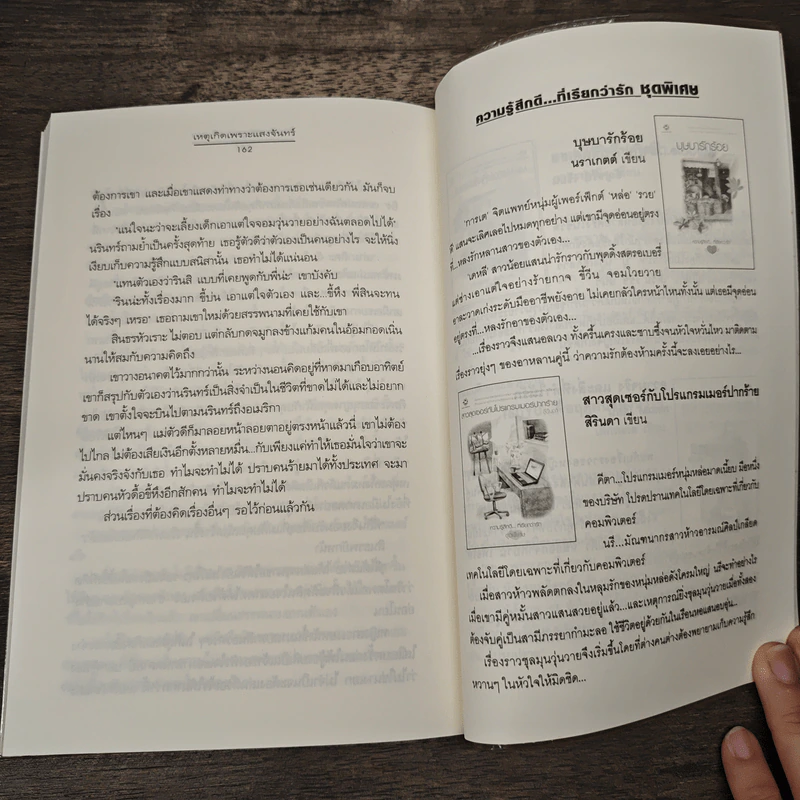 เหตุเกิดเพราะแสงจันทร์
162
ต้องการเขา และเมื่อเขาแสดงท่าทางว่าต้องการเธอเช่นเดียวกัน มันก็จบ
เรื่อง
"แน่ใจนะว่าจะเลี้ยงเด็กเอาแต่ใจจอมวุ่นวายอย่างฉันตลอดไปได้"
นรินทร์ถามย้ำเป็นครั้งสุดท้าย เธอรู้ตัวดีว่าตัวเองเป็นคนอย่างไร จะให้นิ่ง
เงียบเก็บความรู้สึกแบบสนิสานั้น เธอทำไม่ได้แน่นอน
"แทนตัวเองว่ารินสิ แบบที่เคยพูดกับพี่น่ะ" เขาบังคับ
"รินน่ะทั้งเรื่องมาก ขี้บ่น เอาแต่ใจตัวเอง และ...ขี้หึง พี่สินจะทน
ได้จริงๆ เหรอ" เธอถามเขาใหม่ด้วยสรรพนามที่เคยใช้กับเขา
สินธรหัวเราะ ไม่ตอบ แต่กลับกดจมูกลงข้างแก้มคนในอ้อมกอดเนิ่น
นานให้สมกับความคิดถึง
เขาวางอนาคตไว้มากกว่านั้น ระหว่างนอนคิดอยู่ที่หาดมาเกือบอาทิตย์
เขาก็สรุปกับตัวเองว่านรินทร์เป็นสิ่งจำเป็นในชีวิตที่ขาดไม่ได้และไม่อยาก
ขาด เขาตั้งใจจะบินไปตามนรินทร์ถึงอเมริกา
แต่ไหนๆ แม่ตัวดีก็มาลอยหน้าลอยตาอยู่ตรงหน้าแล้วนี่ เขาไม่ต้อง
ไปไกล ไม่ต้องเสียเงินอีกตั้งหลายหมื่น...กับเพียงแค่ทำให้เธอมั่นใจว่าเขาจะ
มั่นคงจริงจังกับเธอ ทำไมจะทำไม่ได้ ปราบคนร้ายมาได้ทั้งประเทศ จะมา
ปราบคนหัวดื้อขี้หึงอีกสักคน ทำไมจะทำไม่ได้
ส่วนเรื่องที่ต้องคิดเรื่องอื่นๆ รอไว้ก่อนแล้วกัน
ความรู้สึกดี...ที่เรียกว่ารัก ชุดพิเศษ
บุษบารักร้อย
นราเกตต์ เขียน
บุษบารักร้อย
'การเด' จิตแพทย์หนุ่มผู้เพอร์เฟ็กต์ 'หล่อ' 'รวย'
ดี แสนจะเลิศเลอไปหมดทุกอย่าง แต่เขามีจุดอ่อนอยู่ตรง
ที่...หลงรักหลานสาวของตัวเอง...
'เดหลี' สาวน้อยแสนน่ารักราวกับพุดดิ้งสตรอเบอรี่
แต่ช่างเอาแต่ใจอย่างร้ายกาจ ขี้วีน จอมโวยวาย
อาละวาดเก่งระดับมืออาชีพยังอาย ไม่เคยกลัวใครหน้าไหนทั้งนั้น แต่เธอมีจุดอ่อน
อยู่ตรงที่...หลงรักอาของตัวเอง...
...เรื่องราวจึงแสนอลเวง ทั้งครื้นเครงและซาบซึ้งจนหัวใจหวั่นไหว มาติดตาม
เรื่องราวยุ่งๆ ของอาหลานคู่นี้ ว่าความรักต้องห้ามครั้งนี้จะลงเอยอย่างไร...
สาวสุดเซอร์กับโปรแกรมเมอร์ปากร้าย
สาวสุดเซอร์กับโปรแกรมเมอร์ปากร้าย
สิรินดา เขียน
ความรู้สึกดี...ที่เรียกว่ารัก
คีตา...โปรแกรมเมอร์หนุ่มหล่อมาดเนี้ยบ มือหนึ่ง
ของบริษัท โปรดปรานเทคโนโลยีโดยเฉพาะที่เกี่ยวกับ
คอมพิวเตอร์
นรี...มัณฑนากรสาวห้าวอารมณ์ศิลป์เกลียด
เทคโนโลยีโดยเฉพาะที่เกี่ยวกับคอมพิวเตอร์
เมื่อสาวห้าวพลัดตกลงในหลุมรักของหนุ่มหล่อดังโครมใหญ่ นรีจะทำอย่างไร
เมื่อเขามีคู่หมั้นสาวแสนสวยอยู่แล้ว...และเหตุการณ์ยิ่งชุลมุนวุ่นวายเมื่อทั้งสอง
ต้องจับคู่เป็นสามีภรรยากำมะลอ ใช้ชีวิตอยู่ด้วยกันในเรือนหอแสนอบอุ่น...
เรื่องราวชุลมุนวุ่นวายจึงเริ่มขึ้นโดยที่ต่างคนต่างต้องพยายามเก็บความรู้สึก
หวานๆ ในหัวใจให้มิดชิด...